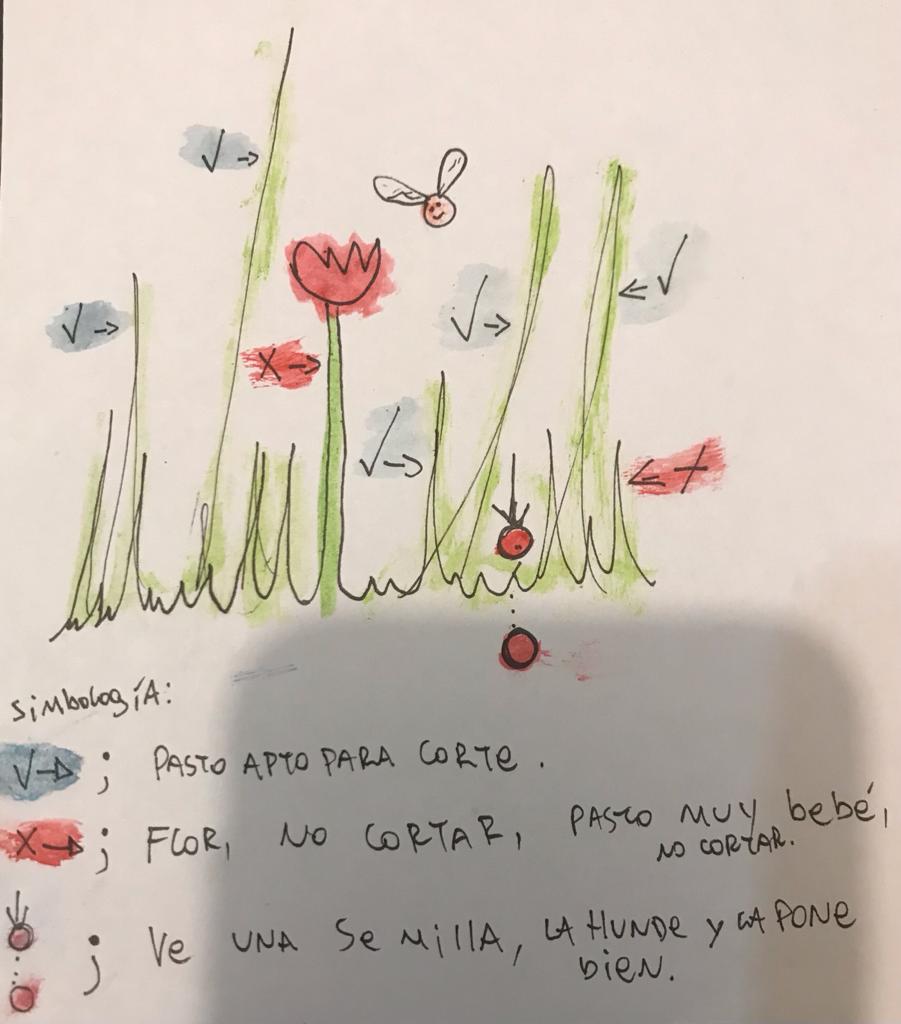 simbología:
√→ ; PASTO APTO PARA CORTE.
X→ ; FLOR, NO CORTAR, PASTO MUY bebé,
NO CORTAR.
; Ve UNA SeMillA, LA HUNDe y LA PONe
bieN.